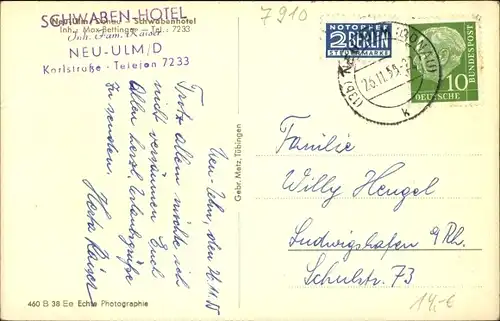 SCHWABEN-HOTEL
Neu-Ulm/Donau - Schwabenhotel
Inh. Fam. Kaiser
Inh. Max Bettinger - Tel.: 7233
NEU-ULM/D
Karlstraße - Telefon 7233
7910
NOTOPFER
2 BERLIN
STEUERMARKE
(DONAU)
26.11.55
(13b)
k
10
DEUTSCHE
BUNDESPOST
Neu Ulm, den 26.11.55
Trotz allem möchte ich
nicht versäumen Euch
Allen herzl. Urlaubsgrüße
zu senden.
Herta Kaiser
Gebr. Metz, Tübingen
Familie
Willy Hengel
Ludwigshafen a/Rh.
Schulstr. 73
460 B 38 Ee Echte Photographie
14,- €